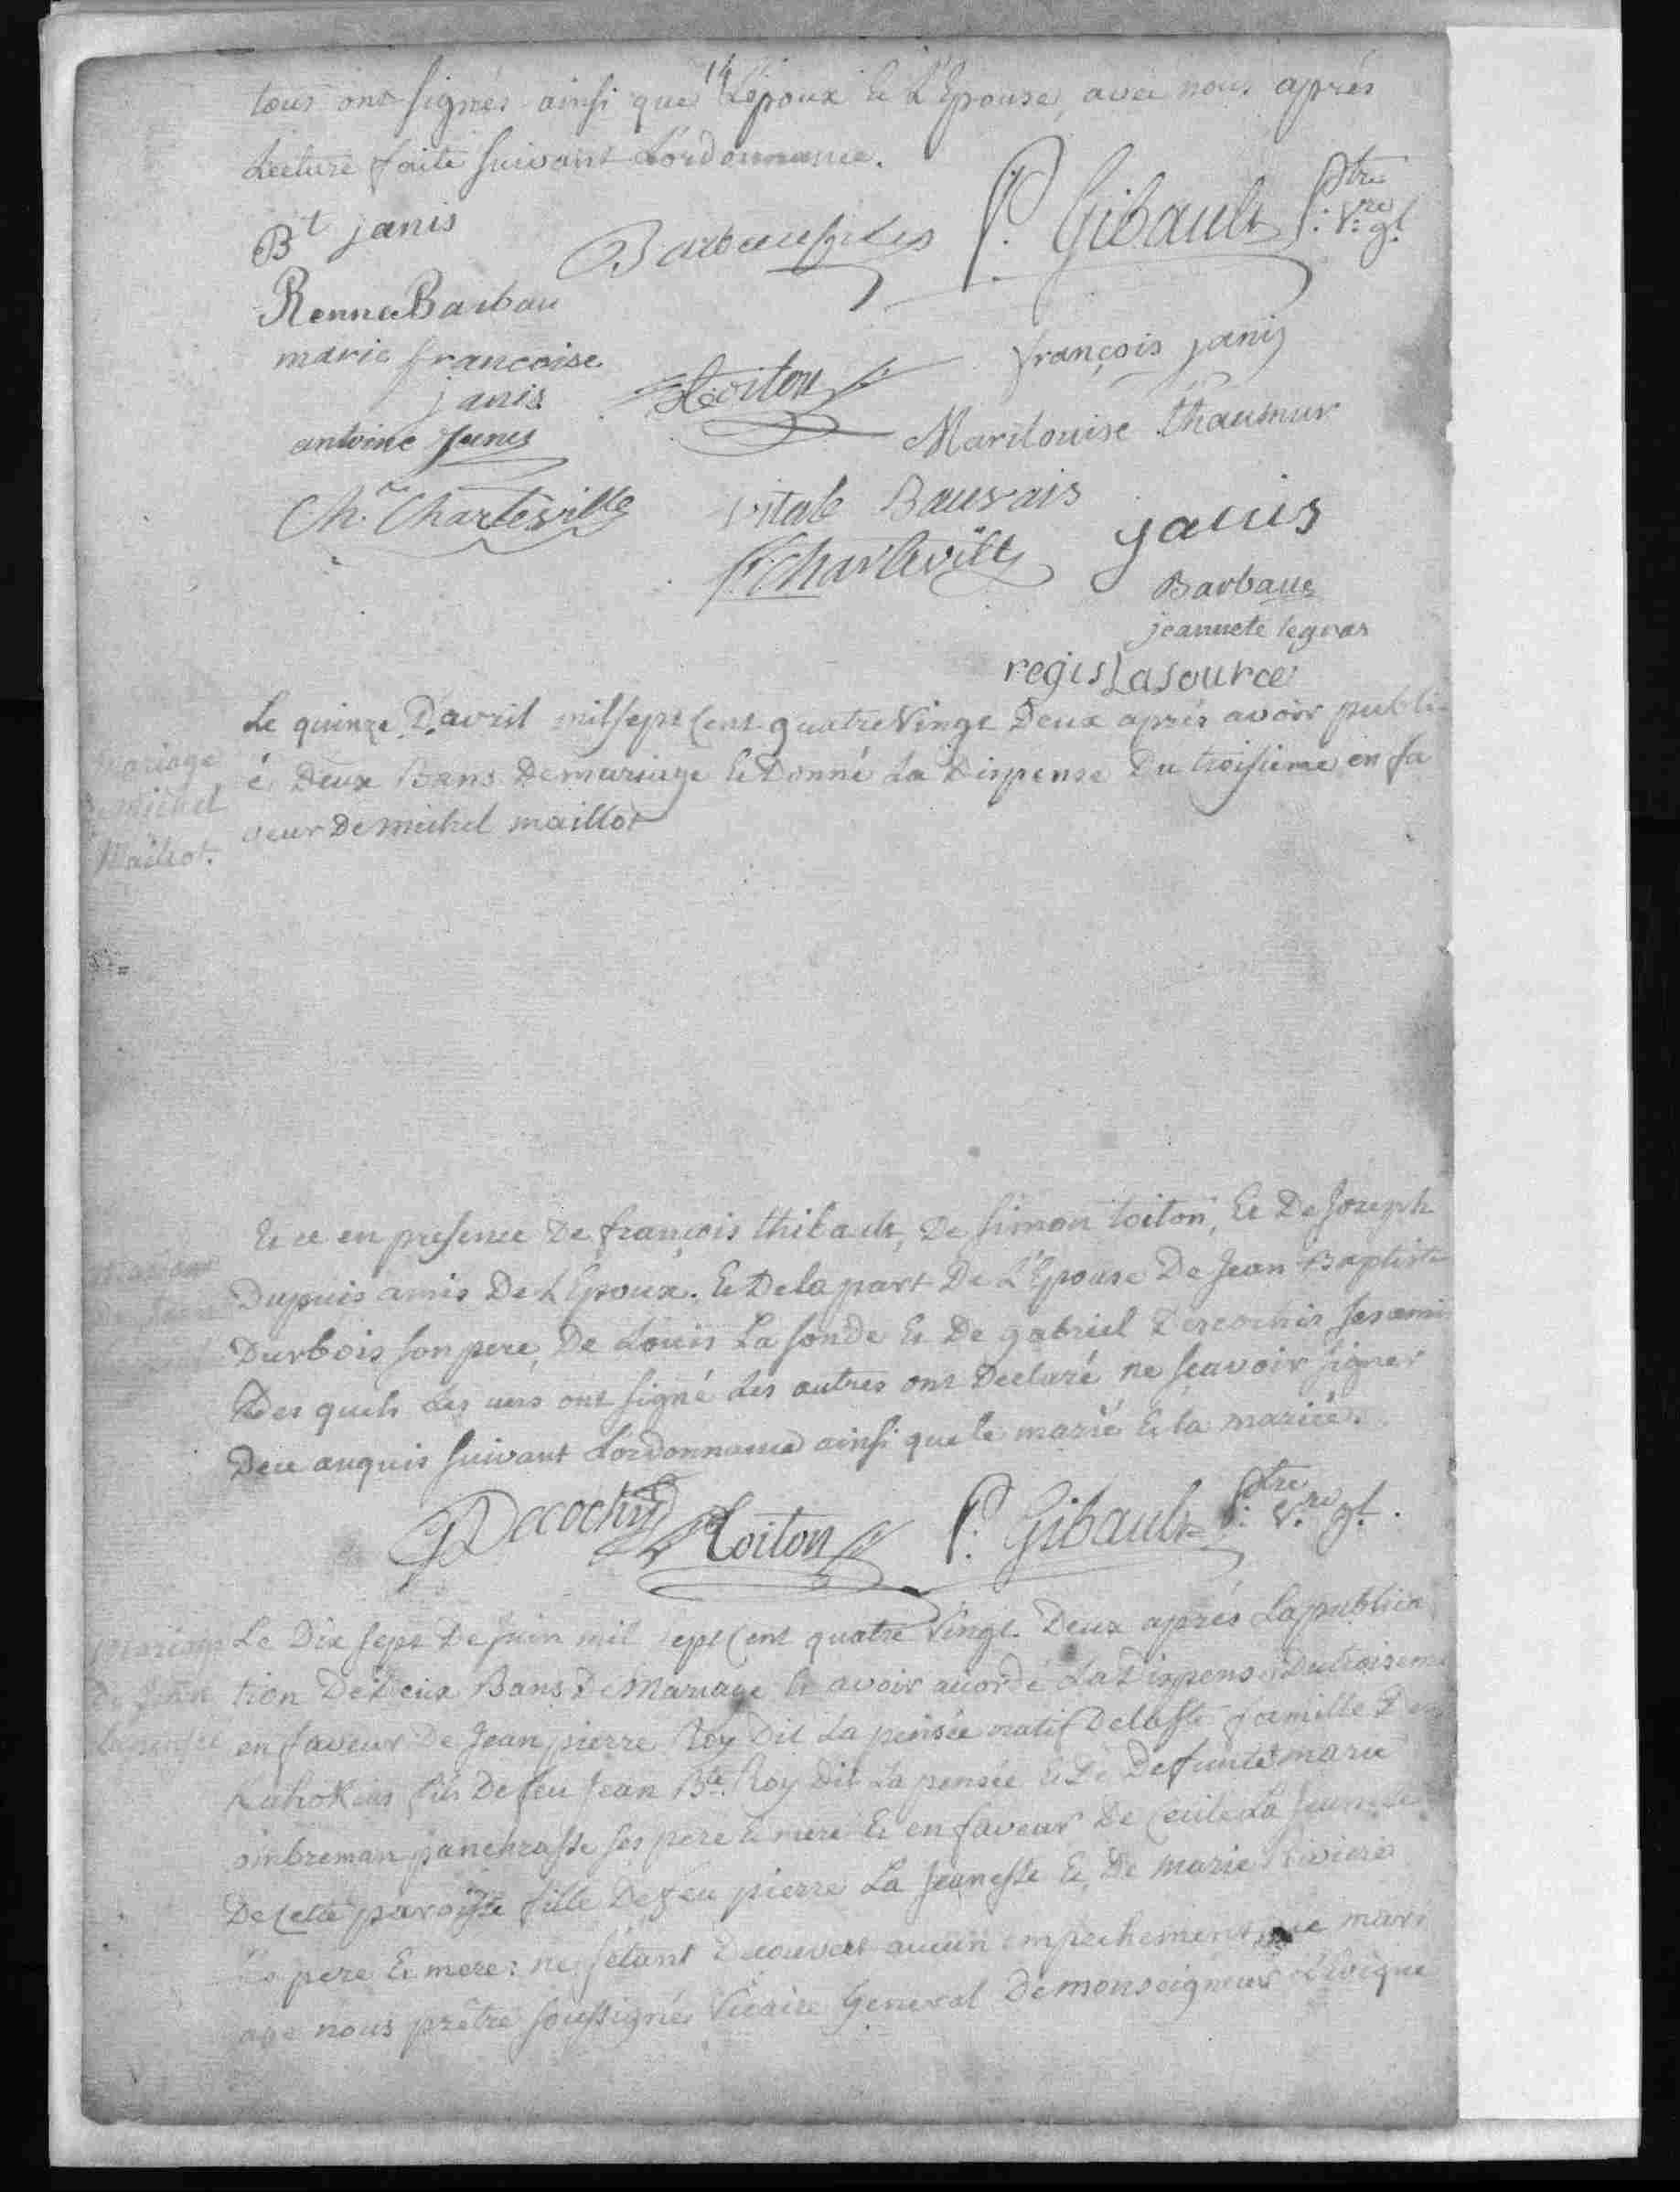 14
tous ont signés ainsi que L'époux & L'Epouse, avec nous aprés
Lecture faite suivant L'ordonnance.
P. Gibault Ptre
V.re gl.
Bt janis
Barbeau fils
Renne Barbau
marie francoise
janis
françois janis
toiton
antoine Janis
Marilouise thaumur
Ch. Charleville
vitale Bauvais
janis
fr. Charleville
Barbau
jeannete legras
regis Lasource
Mariage
Michel
Maillot.
Le quinze D'avril mil sept Cent quatre Vingt Deux aprés avoir publi-
é Deux Bans De mariage & Donné La Dispense Du troisieme en fa
veur De michel maillot
& ce en presence De françois thibault, De simon toiton, & De Joseph
Dupuis amis De L'Epoux. & De la part De L'Epouse De Jean Baptiste
Durbois son pere, De Louis La sonde & De gabriel Descochis ses ami
Des quels Les uns ont signé Les autres ont Declaré ne sçavoir signer
De ce anquis suivant L'ordonnance ainsi que le marié & la mariée.
G Decochy
toiton
P. Gibault Ptre V.re gl.
Mariage
De Jean
lapensée
Le Dix sept De Juin mil sept Cent quatre Vingt Deux aprés La publica
tion De Deux Bans De Mariage & avoir acordé La Dispense Du troisieme
en faveur De Jean pierre Roy Dit La pensée natif De la Ste famille Des
Kahokias fils De feu Jean Bte Roy Dit La pensée & De Defunte marie
ses pere & mere & en faveur De Cecile La Jeunesse
De Cette paroisse fille De feu pierre La Jeunesse & De Marie Riviere
ses pere & mere: ne s'etant Decouvert aucun empechement
mari
age nous prêtre soussigné Vicaire General De monseigneur L'Evêque